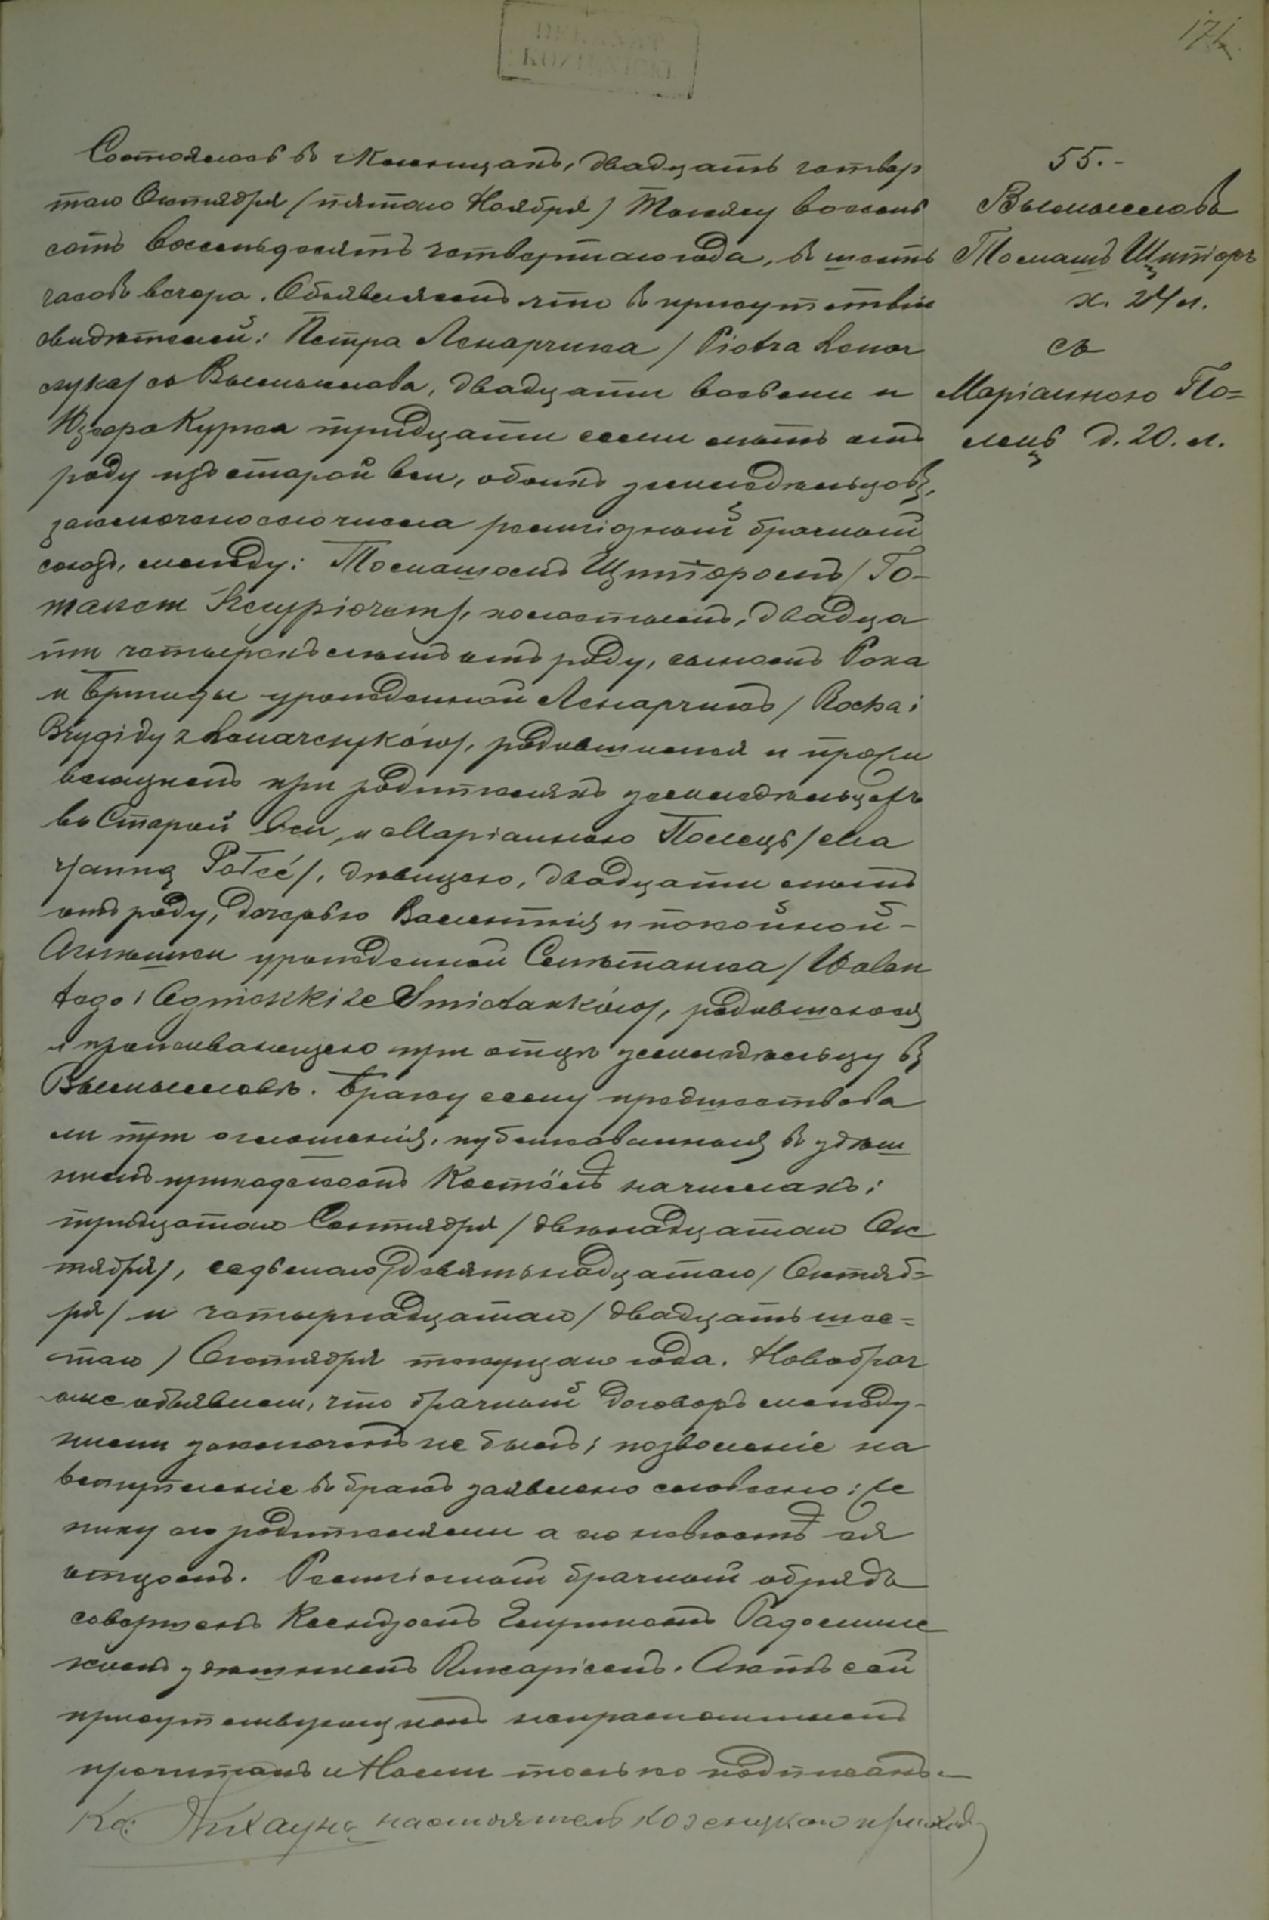 171
55.-
Вымысловъ
Томашъ Щипіоръ
х. 24 л.
съ
Маріанною По=
лець д. 20. л.
Состоялось въ Козеницахъ, двадцать четвер
таго Октября / пятаго Ноября / Тысяча восемь
сотъ восемьдесятъ четвертаго года, въ шесть
часовъ вечера. Объявляемъ что въ присутствіи
свидѣтелей: Петра Ленарчика / Piotra Lenar
czyka / съ Вымыслова, двадцати восьми и
Курка тридцати семи лѣтъ отъ
роду изъ старой вси, обоихъ земледѣльцовъ,
заключенъ сего числа религіозный брачный
союзъ, между: Томашомъ Щипіоромъ / To-
maszem Szczypiorem /, холостымъ, двадца
ти четырехъ лѣтъ отъ роду, сыномъ Роха
и Бригиды урожденной Ленарчикъ / Rocha i
Brygidy z Lenarczyków /, родившимся и прожи
вающимъ при родителяхъ земледѣльцахъ
въ Старой Вси, и Маріанною Полець / Ma
ryanną Połeć /, дѣвицею, двадцати лѣтъ
отъ роду, дочерью Валентія и покойной-
Агнѣшки урожденной Смѣтанка / Walen
tego i Agnieszki ze Smietanków /, родившеюся
и проживающею при отцѣ земледѣльцу въ
Вымысловѣ. Браку сему предшествова
ли три оглашенія, публикованныя въ здѣш
немъ приходскомъ Костёлѣ на числахъ:
тридцатаго Сентября / двѣнадцатаго Ок
тября /, седьмаго / девятьнадцатаго / Октяб=
ря / и четырнадцатаго / двадцать шес=
таго / Октября текущаго года. Новобрач
ные объявили, что брачный договоръ между-
ними заключенъ не былъ; позволеніе на
вступленіе въ бракъ заявлено словесно: Же
ниху его родителями а его невѣстѣ ея
отцомъ. Религіозный брачный обрядъ
совершенъ Ксендзомъ Генрикомъ Радомин
скимъ здѣшнимъ Викаріемъ. Актъ сей
присутствующимъ неграмотнымъ
прочитанъ и Нами только подписанъ.-
Кс: настоятель козеницкаго прихода